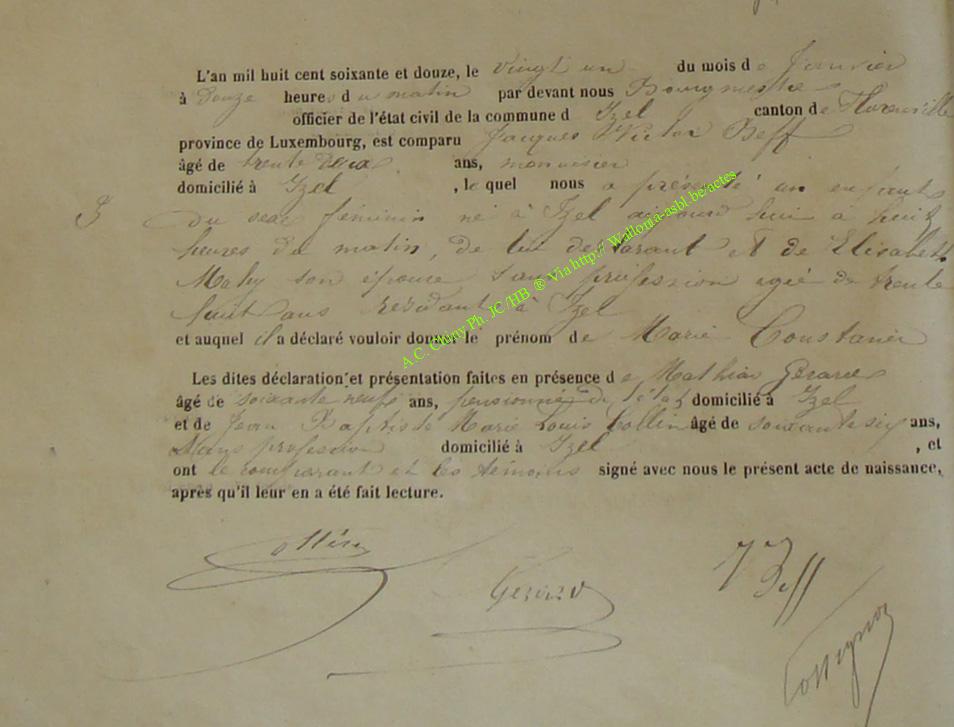 L'an mil huit cent soixante et douze, le vingt un du mois de Janvier
à douze heures du matin par devant nous Bourgmestre
officier de l'état civil de la commune d Izel canton de Florenville
province de Luxembourg, est comparu Jacques Victor Deff
âgé de trente deux ans, menuisier
domicilié à Izel, lequel nous a présenté un enfant
3 du sexe féminin né à Izel aujourd'hui à huit
heures du matin, de lui déclarant et de Elisabeth
Mahy son épouse sans profession agée de trente
huit ans résidant à Izel
et auquel il a déclaré vouloir donner le prénom de Marie Constance
Les dites déclaration et présentation faites en présence de Mathias Gerard
âgé de soixante neuf ans, pensionné de l'état domicilié à Izel
et de Jean Baptiste Marie Louis Collin âgé de soixante six ans,
sans profession domicilié à Izel, et
ont le comparant et les témoins signé avec nous le présent acte de naissance,
après qu'il leur en a été fait lecture.
Gerard
J V Deff
A.C. Chiny Ph. JC /HB ® Via http:// Wallonia-asbl.be/actes